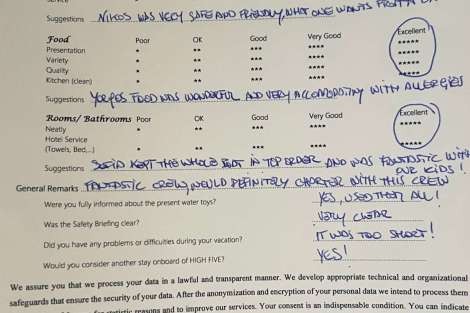 Suggestions NIKOS WAS VERY SAFE AND FRIENDLY, WHAT ONE WANTS FROM A
Food Poor OK Good Very Good Excellent
Presentation * ** *** **** *****
Variety * ** *** **** *****
Quality * ** *** **** *****
Kitchen (clean) * ** *** **** *****
Suggestions FOOD WAS WONDERFUL AND VERY ACCOMODATING WITH ALLERGIES
Rooms/ Bathrooms Poor OK Good Very Good Excellent
Neatly * ** *** **** *****
Hotel Service
(Towels, Bed,..) * ** *** **** *****
Suggestions SOFIA KEPT THE WHOLE BOAT IN TOP ORDER AND WAS FANTASTIC WITH
OUR KIDS!
General Remarks FANTASTIC CREW, WOULD DEFINITELY CHARTER WITH THIS CREW
Were you fully informed about the present water toys? YES, USED THEM ALL!
Was the Safety Briefing clear? VERY CLEAR
Did you have any problems or difficulties during your vacation? IT WAS TOO SHORT!
Would you consider another stay onboard of HIGH FIVE? YES!
We assure you that we process your data in a lawful and transparent manner. We develop appropriate technical and organizational
safeguards that ensure the security of your data. After the anonymization and encryption of your personal data we intend to process them
for statistic reasons and to improve our services. Your consent is an indispensable condition. You can indicate